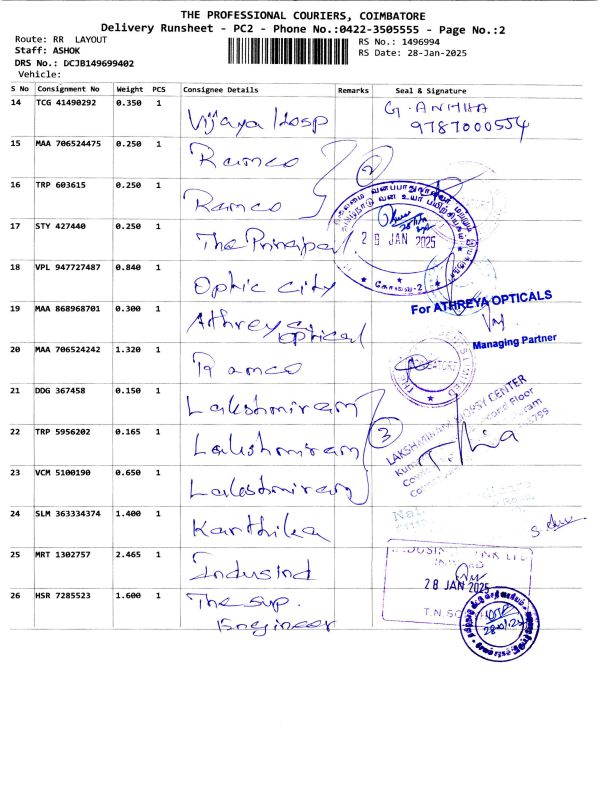 THE PROFESSIONAL COURIERS, COIMBATORE
Delivery Runsheet - PC2 - Phone No.:0422-3505555 - Page No.:2
Route: RR LAYOUT
RS No.: 1496994
Staff: ASHOK
RS Date: 28-Jan-2025
DRS No.: DCJB149699402
Vehicle:
S No Consignment No Weight PCS Consignee Details Remarks Seal & Signature
14 TCG 41490292 0.350 1 Vijaya Hosp G. ANITHA
9787000554
15 MAA 706524475 0.250 1 Ramco 2
16 TRP 603615 0.250 1 Ramco
17 STY 427440 0.250 1 The Principal
28 JAN 2025
கோவை-2
18 VPL 947727487 0.840 1 Optic City
19 MAA 868968701 0.300 1 Athreya Optical
For ATHREYA OPTICALS
Managing Partner
20 MAA 706524242 1.320 1 Ramco
21 DDG 367458 0.150 1 Lakshmiram
LAKSHMIRAM BIOPSY CENTER
22 TRP 5956202 0.165 1 Lakshmiram 3
23 VCM 5100190 0.650 1 Lakshmiram
24 SLM 363334374 1.400 1 Karthika
25 MRT 1302757 2.465 1 Indusind
INDUSIND BANK LTD
28 JAN 2025
26 HSR 7285523 1.600 1 The Sup.
Engineer